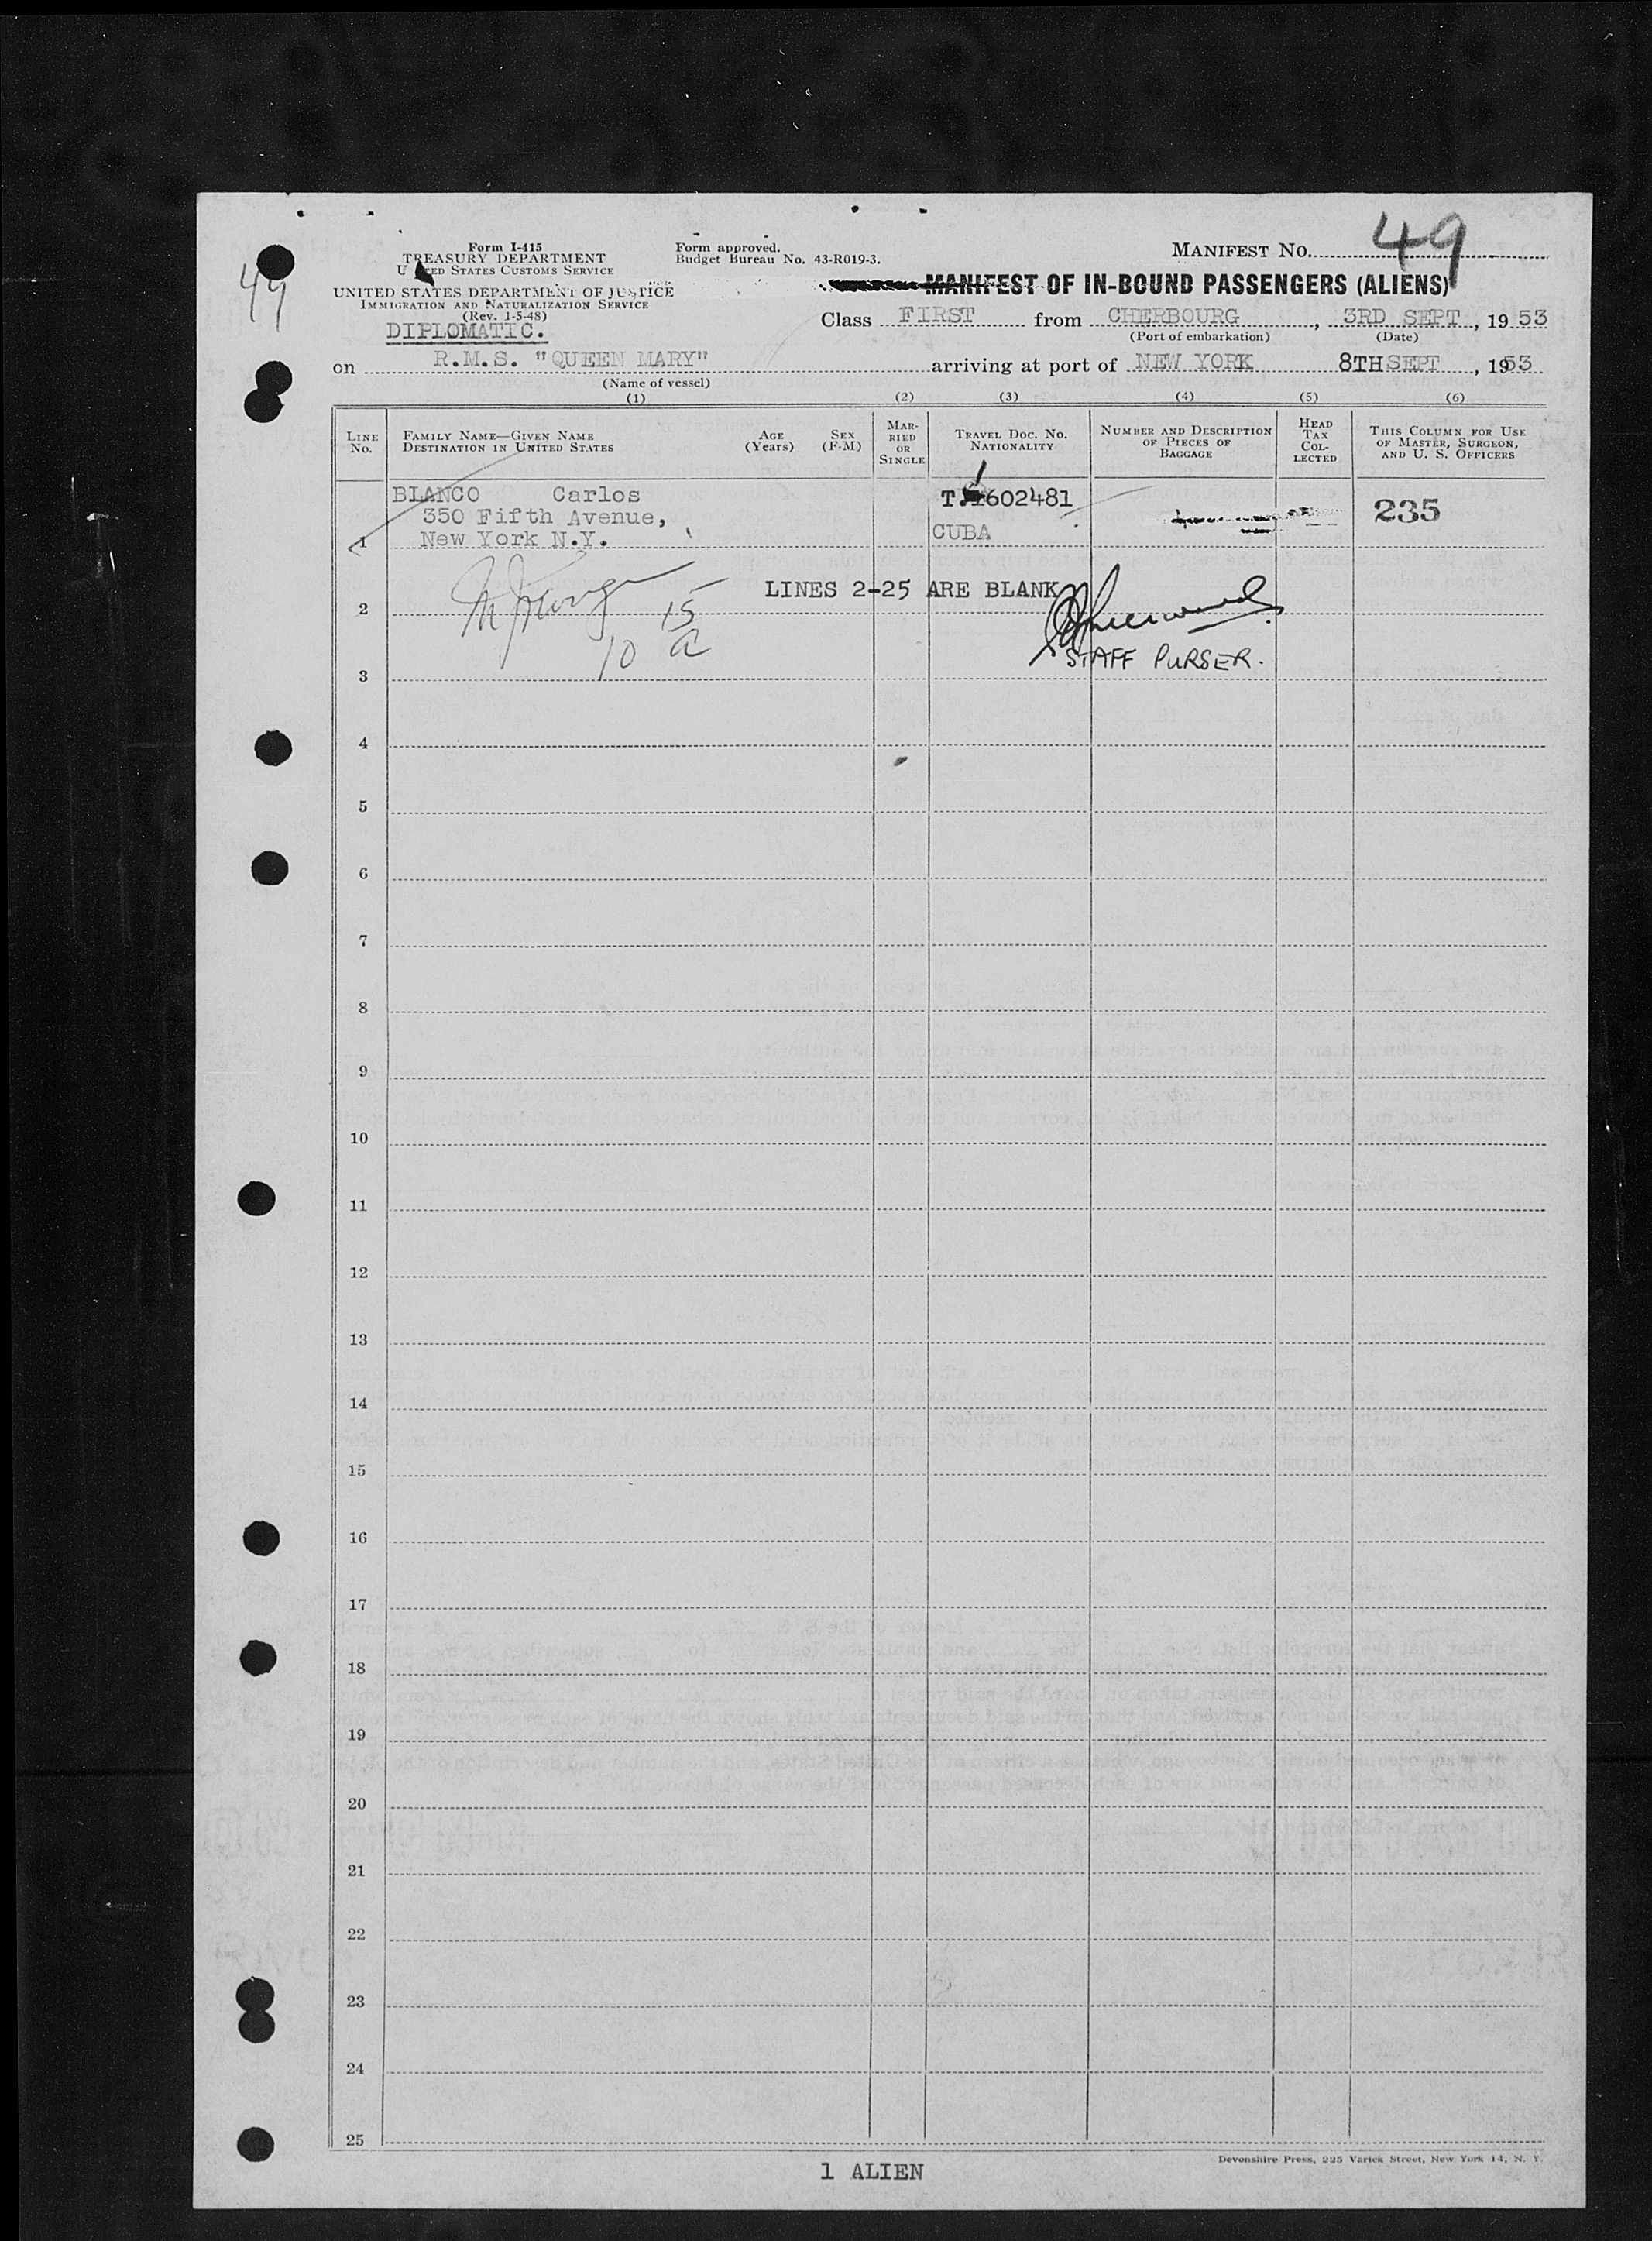 49
Form I-415
TREASURY DEPARTMENT
UNITED STATES CUSTOMS SERVICE
UNITED STATES DEPARTMENT OF JUSTICE
IMMIGRATION AND NATURALIZATION SERVICE
(Rev. 1-5-48)
DIPLOMATIC.
Form approved.
Budget Bureau No. 43-R019-3.
MANIFEST No. 49
MANIFEST OF IN-BOUND PASSENGERS (ALIENS)
Class FIRST from CHERBOURG, 3RD SEPT, 19 53
(Port of embarkation) (Date)
on R.M.S. "QUEEN MARY" arriving at port of NEW YORK 8TH SEPT, 1953
(Name of vessel)
(1) (2) (3) (4) (5) (6)
LINE No.
FAMILY NAME—GIVEN NAME
DESTINATION IN UNITED STATES
AGE (Years)
SEX (F-M)
MARRIED OR SINGLE
TRAVEL DOC. NO.
NATIONALITY
NUMBER AND DESCRIPTION OF PIECES OF BAGGAGE
HEAD TAX COLLECTED
THIS COLUMN FOR USE OF MASTER, SURGEON, AND U. S. OFFICERS
BLANCO Carlos T.1602481 235
350 Fifth Avenue,
1 New York N.Y. CUBA
LINES 2-25 ARE BLANK
2 15
10 a
STAFF PURSER.
3
4
5
6
7
8
9
10
11
12
13
14
15
16
17
18
19
20
21
22
23
24
25
1 ALIEN
Devonshire Press, 225 Varick Street, New York 14, N. Y.